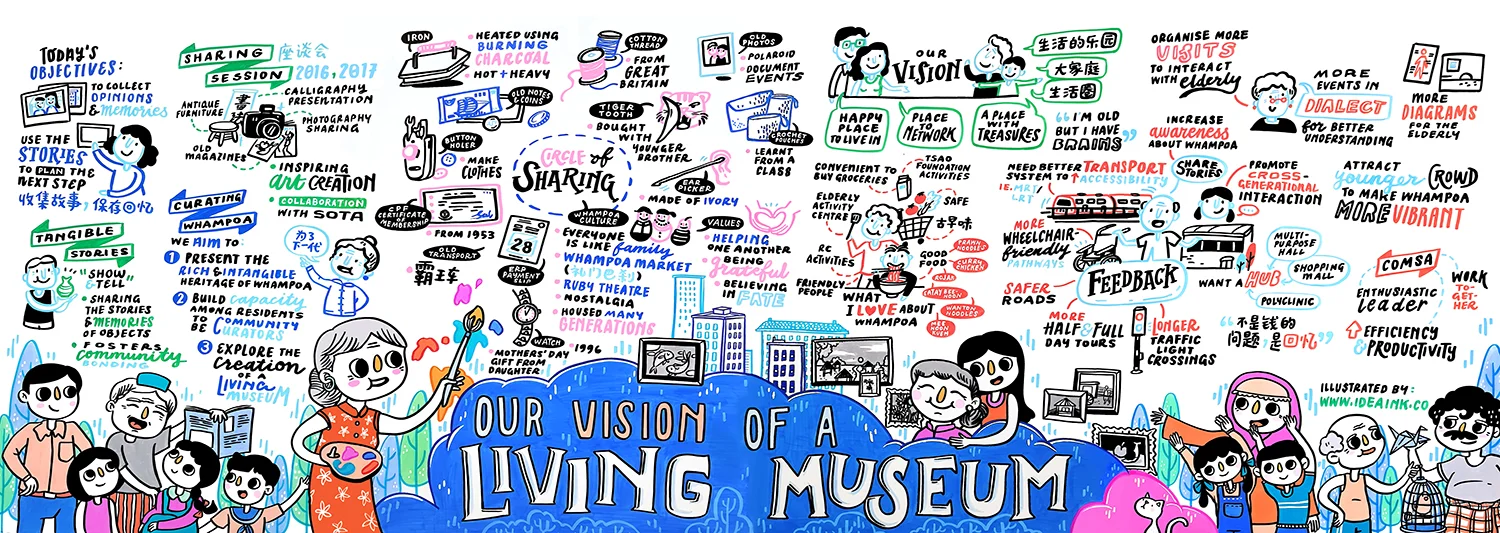 TODAY'S
OBJECTIVES:
TO COLLECT
OPINIONS
& memories
USE THE
STORIES
TO PLAN THE
NEXT STEP
收集故事，保存回忆
TANGIBLE
STORIES
"SHOW
& TELL"
SHARING
THE STORIES
& MEMORIES
OF OBJECTS
FOSTERS
community
BONDING
SHARING
SESSION
座谈会
2016, 2017
ANTIQUE
FURNITURE
CALLIGRAPHY
PRESENTATION
PHOTOGRAPHY
SHARING
OLD
MAGAZINES
INSPIRING
art CREATION
COLLABORATION
WITH SOTA
CURATING
WHAMPOA
WE AIM TO:
1 PRESENT THE
RICH & INTANGIBLE
HERITAGE OF WHAMPOA
2 BUILD capacity
AMONG RESIDENTS
TO COMMUNITY
BE CURATORS
3 EXPLORE THE
Creation
OF A
LIVING
MUSEUM
为了
下一代
IRON
HEATED USING
BURNING
CHARCOAL
HOT + HEAVY
OLD NOTES
& COINS
BUTTON
HOLER
MAKE
CLOTHES
CPF
CERTIFICATE
OF
MEMBERSHIP
FROM 1953
OLD
TRANSPORT
霸王车
28
ERP
PAYMENT
SLIP
WATCH
MOTHERS' DAY 1996
GIFT FROM
DAUGHTER
COTTON
THREAD
FROM
GREAT
BRITAIN
TIGER
TOOTH
BOUGHT
WITH
YOUNGER
BROTHER
CIRCLE of
SHARING
EAR
PICKER
MADE OF IVORY
OLD
PHOTOS
POLAROID
DOCUMENT
EVENTS
CROCHET
POUCHES
LEARNT
FROM A
CLASS
WHAMPOA
CULTURE
EVERYONE
IS LIKE family
WHAMPOA MARKET
RUBY THEATRE
NOSTALGIA
HOUSED MANY
GENERATIONS
VALUES
HELPING
ONE ANOTHER
BEING
grateful
BELIEVING
IN FATE
OUR
VISION
生活的乐园
大家庭
生活圈
HAPPY
PLACE
TO LIVE IN
PLACE
TO
NETWORK
A PLACE
WITH
TREASURES
"I'M OLD
BUT I HAVE
BRAINS"
CONVENIENT TO
BUY GROCERIES
TSAO
FOUNDATION
ACTIVITIES
ELDERLY
ACTIVITY
CENTRE
SAFE
古早味
RC
ACTIVITIES
GOOD
FOOD
PRAWN
NOODLES
CURRY
CHICKEN
ROJAK
SATAY BEE
HOON
WANTON
NOODLES
MEE
HOON
KUEH
FRIENDLY
PEOPLE
WHAT
I LOVE ABOUT
WHAMPOA
ORGANISE MORE
VISITS
TO INTERACT
WITH elderly
MORE
EVENTS IN
DIALECT
for BETTER
UNDERSTANDING
MORE
DIAGRAMS
FOR THE
ELDERLY
INCREASE
awareness
ABOUT WHAMPOA
NEED BETTER TRANSPORT
SYSTEM TO ACCESSIBILITY
IE. MRT/
LRT
SHARE
STORIES
PROMOTE
CROSS-
GENERATIONAL
INTERACTION
ATTRACT
younger CROWD
TO MAKE WHAMPOA
MORE VIBRANT
MORE
WHEELCHAIR-
friendly
PATHWAYS
SAFER
ROADS
FEEDBACK
MORE
HALF & FULL
DAY TOURS
LONGER
TRAFFIC
LIGHT
CROSSINGS
WANT A HUB
MULTI-
PURPOSE
HALL
SHOPPING
MALL
POLYCLINIC
"不是钱的
问题，是回忆"
COMSA
ENTHUSIASTIC
Leader
WORK
TO-
GET-
HER
EFFICIENCY
& PRODUCTIVITY
ILLUSTRATED BY:
WWW.IDEAINK.CO
OUR VISION OF A
LIVING MUSEUM